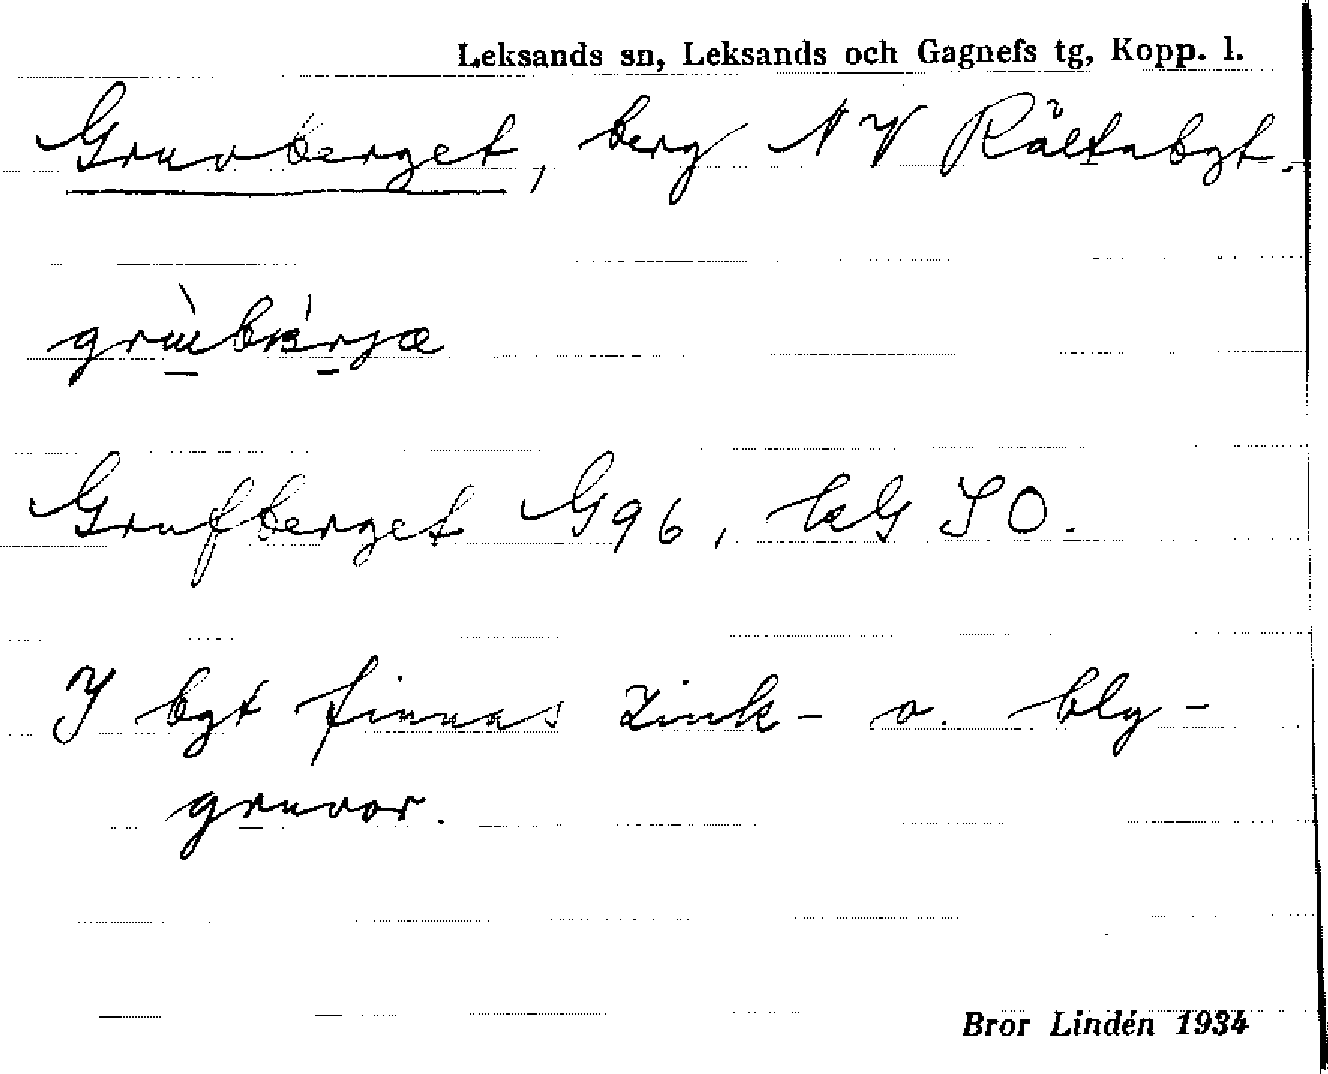 Leksands sn, Leksands och Gagnefs tg, Kopp. l.
Gruvberget, berg NV Rältabgt.
Grufberget G96, kG SO.
I bgt finnas zink- o. bly-
gruvor.
Bror Lindén 1934